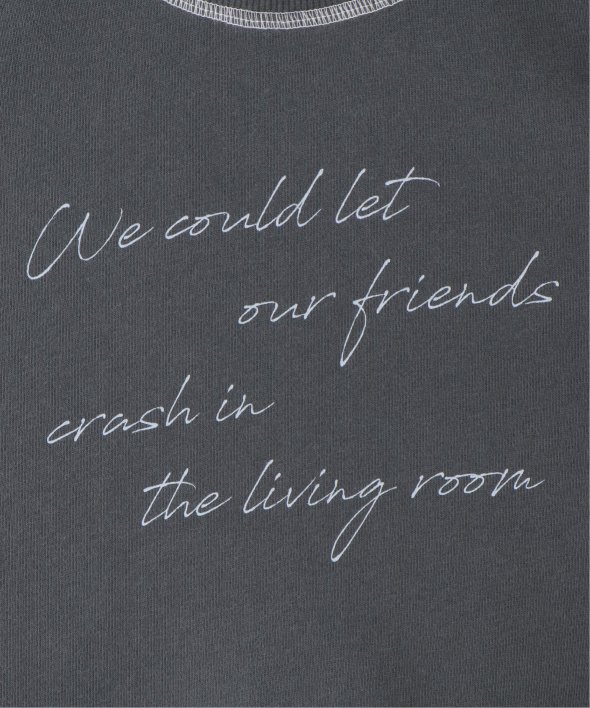 We could let
our friends
crash in
the living room